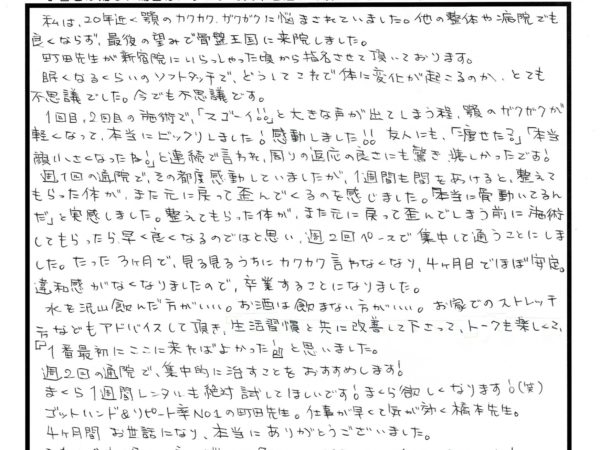 私は、20年近く顎のカクカク、ガクガクに悩まされていました。他の整体や病院でも
良くならず、最後の望みで骨盤王国に来院しました。
町田先生が新宿院にいらっしゃった頃から指名させて頂いております。
眠くなるくらいのソフトタッチで、どうしてこれで体に変化が起こるのか、とても
不思議でした。今でも不思議です。
1回目、2回目の施術で、「スゴーイ!!」と大きな声が出てしまう程、顎のガクガクが
軽くなって、本当にビックリしました!感動しました!!友人にも、「痩せた?」「本当
顔小さくなったね!」と連続で言われ、周りの反応の良さにも驚き嬉しかったです!
週1回の通院で、その都度感動していましたが、1週間も間をあけると、整えて
もらった体が、また元に戻って歪んでくるのを感じました。「本当に骨動いてるん
だ」と実感しました。整えてもらった体が、また元に戻って歪んでしまう前に施術
してもらったら早く良くなるのではと思い、週2回ペースで集中して通うことにしま
した。たった3ヶ月で、見る見るうちにカクカク言わなくなり、4ヶ月目でほぼ安定。
違和感がなくなりましたので、卒業することになりました。
水を沢山飲んだ方がいい。お酒は飲まない方がいい。お家でのストレッチ
方などもアドバイスして頂き、生活習慣と共に改善して下さって、トークも楽しくて、
『1番最初にここに来ればよかった!!』と思いました。
週2回の通院で、集中的に治すことをおすすめします!
まくら1週間レンタルも絶対試してほしいです!まくら欲しくなります!(笑)
ゴットハンド&リピート率NO1の町田先生。仕事が早くて気が効く橋本先生。
4ヶ月間お世話になり、本当にありがとうございました。